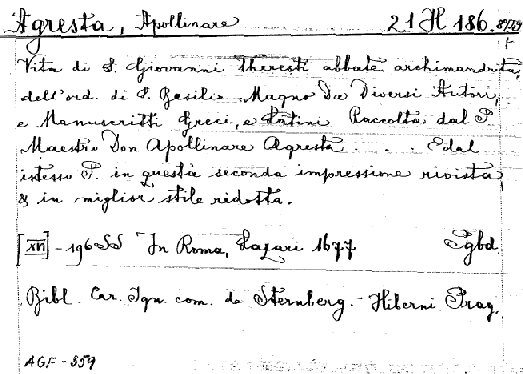 Agresta, Apollinare 21 H 186.
Vita di S. Giovanni Theresti abbate archimandrita
dell'ord. di S. Basilio Magno Da Diversi Autori,
e Manuscritti Greci, e Latini Raccolta dal P.
Maestro Don Apollinare Agresta . . . . . E dal
istesso P. in questa seconda impressione rivista,
& in miglior stile ridotta.
[XII] - 196 SS In Roma, Lazari 1677 Pgbd.
Bibl. Car. Ign. com. de Sternberg. - Hiberni Prag.
AGF - 859